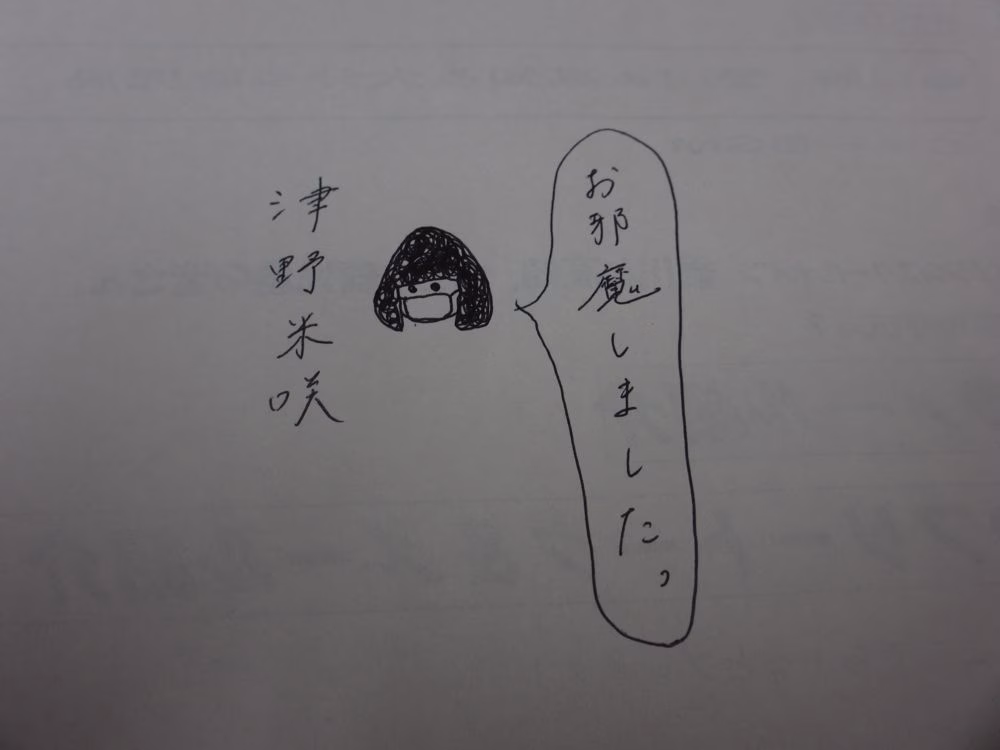 お邪魔しました。
津野米咲